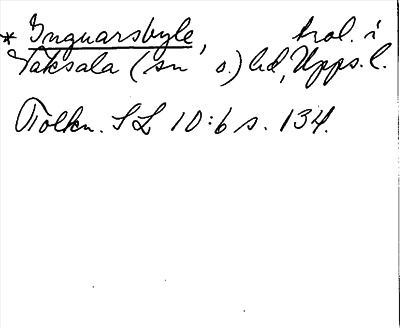 * Ingvarsbyle, trol. i
Vaksala (sn o.) hd, Upps. l.
Tolkn. SL 10:6 s. 134.